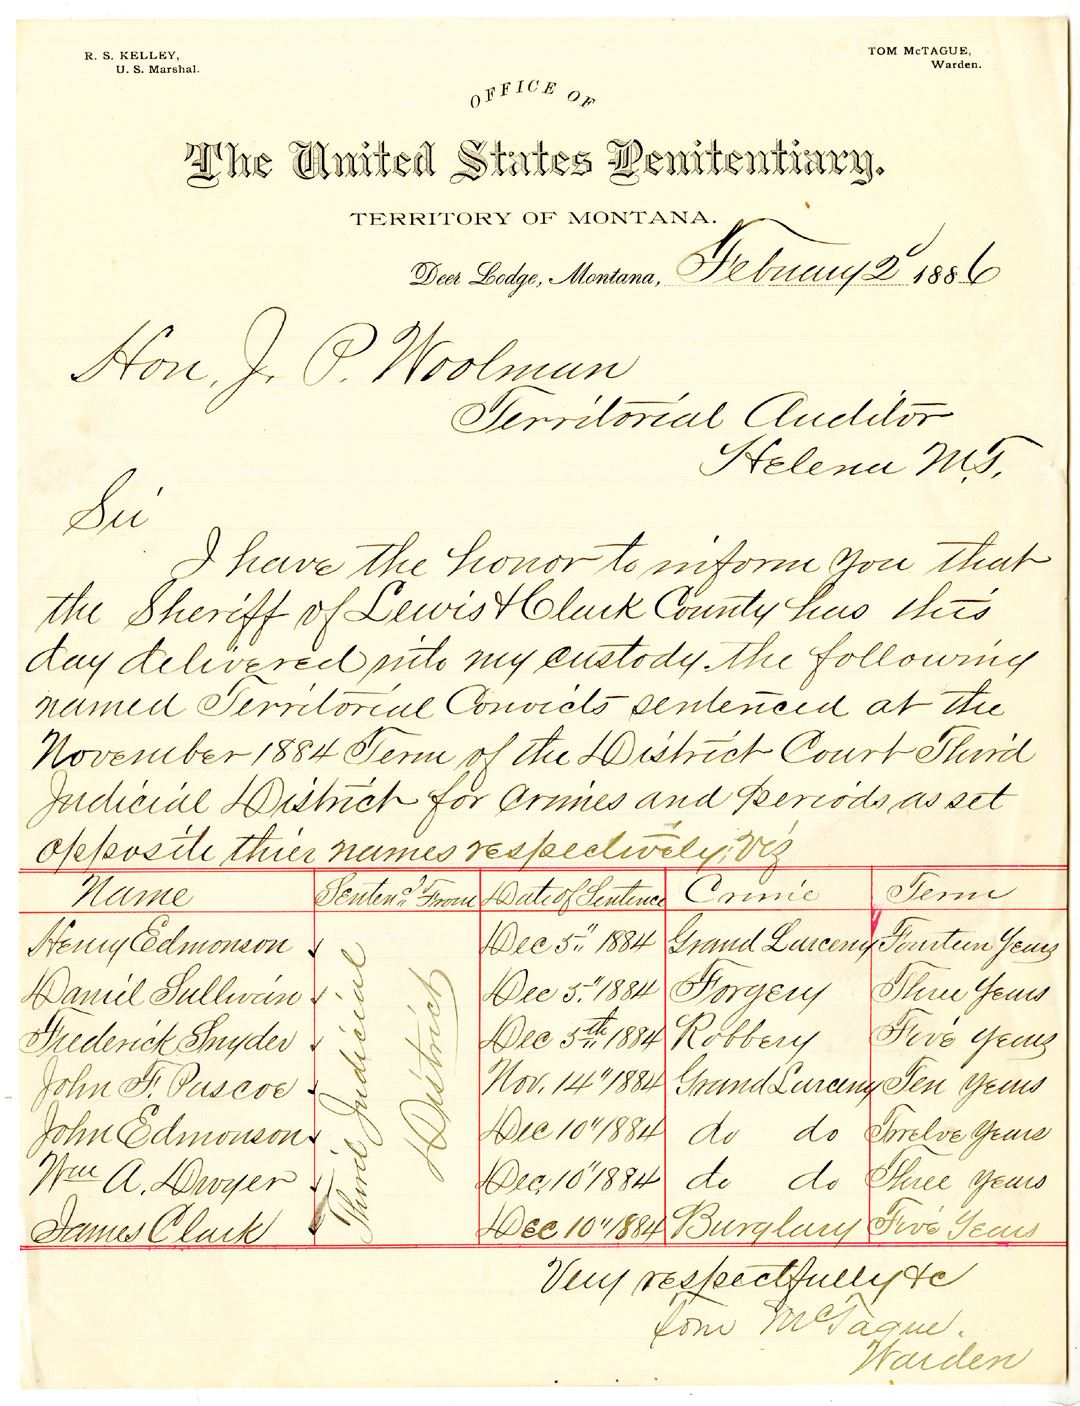 R. S. KELLEY,
U. S. Marshal.
TOM McTAGUE,
Warden.
OFFICE OF
The United States Penitentiary.
TERRITORY OF MONTANA.
Deer Lodge, Montana, February 2d 1886
Hon. J. P. Woolman
Territorial Auditor
Helena M.T.
Sir
I have the honor to inform you that
the Sheriff of Lewis & Clark County has this
day delivered into my custody the following
named Territorial Convicts sentenced at the
November 1884 Term of the District Court Third
Judicial District for crimes and periods as set
opposite thier names respectively; Viz
Name Sentend From Date of Sentence Crime Term
Henry Edmonson Dec 5" 1884 Grand Larceny Fourteen Years
Daniel Sullivan Dec 5" 1884 Forgery Three Years
Frederick Snyder Dec 5th 1884 Robbery Five Years
John F. Pascoe Nov. 14" 1884 Grand Larceny Ten Years
John Edmonson Dec 10" 1884 do do Twelve Years
Wm A. Dwyer Dec 10" 1884 do do Three Years
James Clark Dec 10" 1884 Burglary Five Years
Third Judicial
District
Very respectfully &c
Tom McTague.
Warden